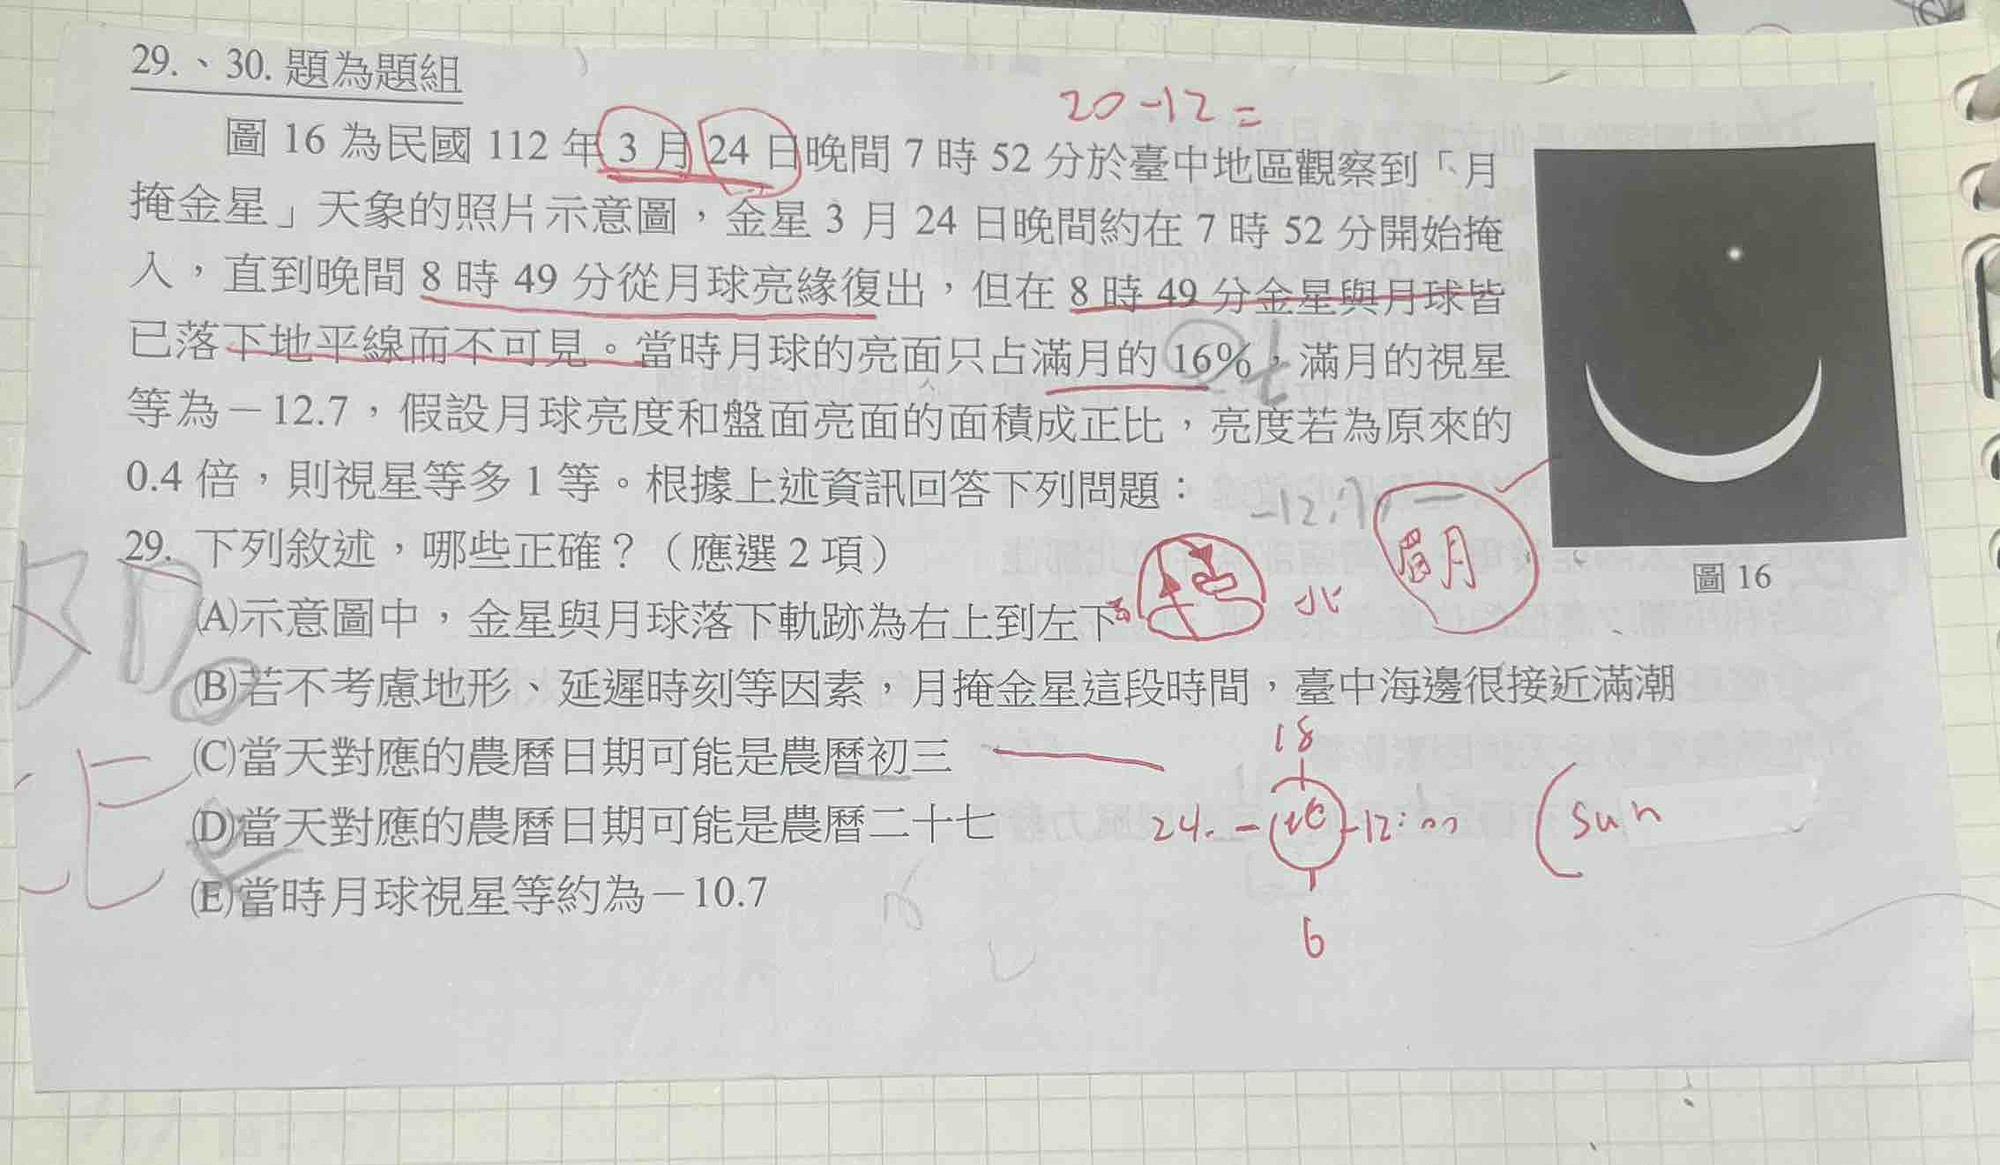 29.、30. 題為題組
20-12=
圖 16 為民國 112 年 3 月 24 日晚間 7 時 52 分於臺中地區觀察到「月
掩金星」天象的照片示意圖，金星 3 月 24 日晚間約在 7 時 52 分開始掩
入，直到晚間 8 時 49 分從月球亮緣復出，但在 8 時 49 分金星與月球皆
已落下地平線而不可見。當時月球的亮面只占滿月的 16%，滿月的視星
等為－12.7，假設月球亮度和盤面亮面的面積成正比，亮度若為原來的
0.4 倍，則視星等多 1 等。根據上述資訊回答下列問題：
-12.7
眉月
圖 16
29. 下列敘述，哪些正確？（應選 2 項）
BD
(A)示意圖中，金星與月球落下軌跡為右上到左下
北
(B)若不考慮地形、延遲時刻等因素，月掩金星這段時間，臺中海邊很接近滿潮
(C)當天對應的農曆日期可能是農曆初三
18
CE
(D)當天對應的農曆日期可能是農曆二十七
24. - 地 -12:00 sun
(E)當時月球視星等約為－10.7
6